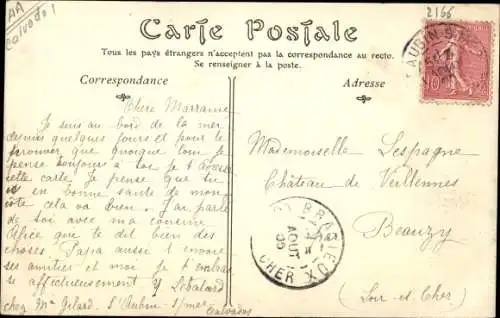 AA
Calvados
2166
Carte Postale
Tous les pays étrangers n'acceptent pas la correspondance au recto.
Se renseigner à la poste.
Correspondance
Adresse
AUBIN-S
10
Chère Marraine
Je suis au bord de la mer
depuis quelques jours et pour te
prouver que quoique loin je
pense toujours à toi je t'
cette carte. Je pense que tu
es en bonne santé de mon
côté cela va bien. J'ai parlé
de toi avec ma cousine
Alice que te dit bien des
choses. Papa aussi t'envoie
ses amitiés et moi je t'embrasse
affectueusement Y Lebalard
chez Me Gilard. St Aubin s/mer
Calvados
Mademoiselle Lespagne
Château de
Beauzy
(Loir et Cher)
AOUT
CHER